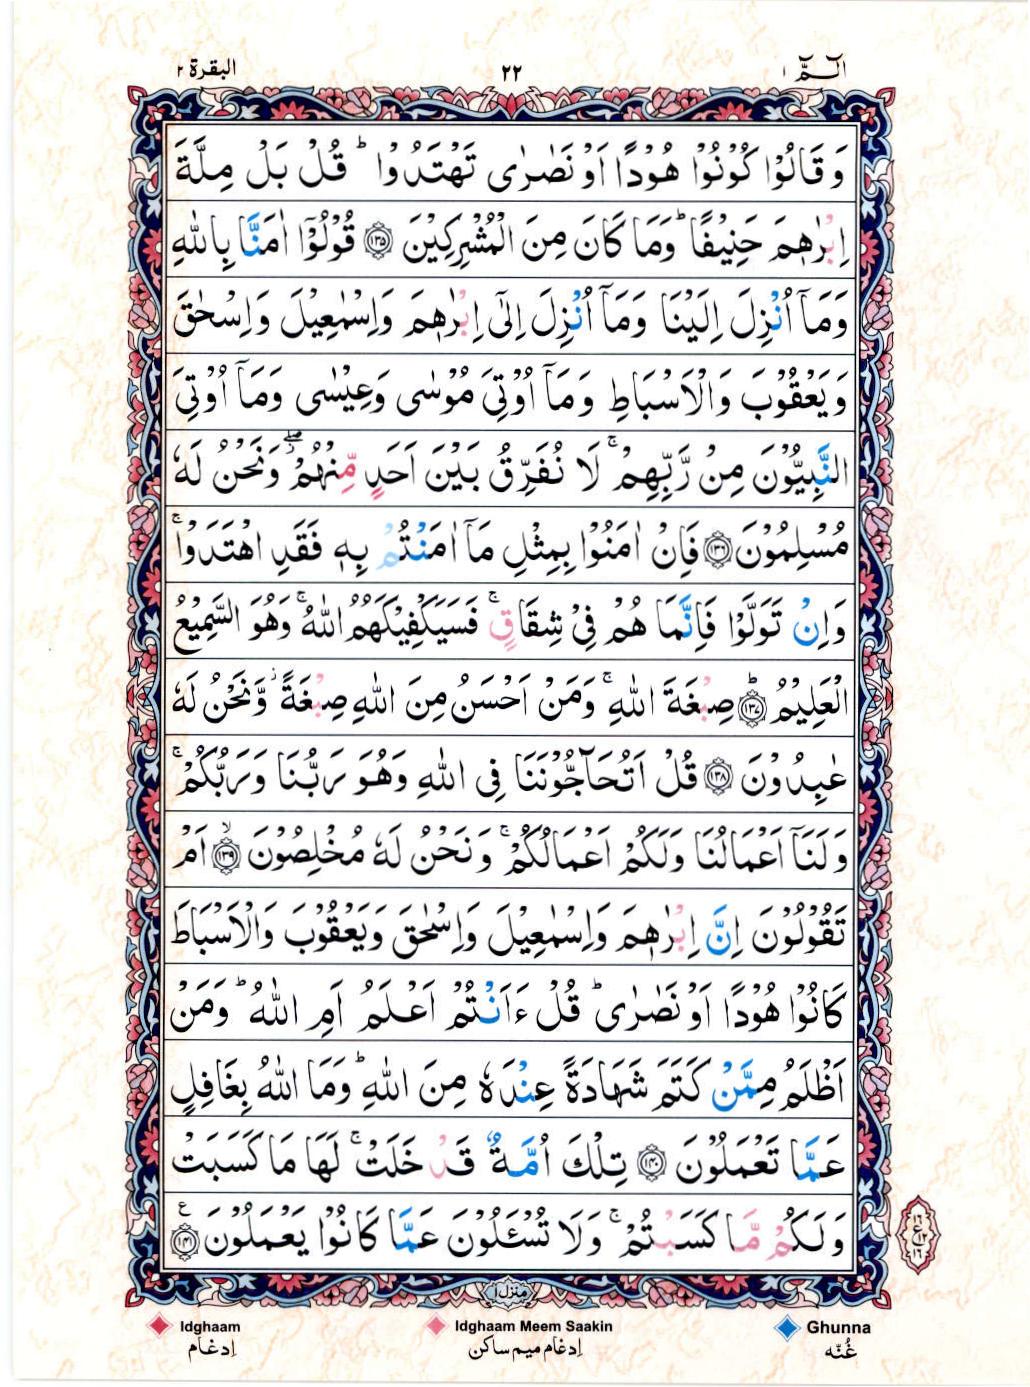 الٓمّٓ ١
٢٢
البقرة ٢
وَقَالُوْا كُوْنُوْا هُوْدًا اَوْ نَصٰرٰى تَهْتَدُوْا ؕ قُلْ بَلْ مِلَّةَ
اِبْرٰهٖمَ حَنِيْفًا ؕ وَمَا كَانَ مِنَ الْمُشْرِكِيْنَ ﴿۱۳۵﴾ قُوْلُوْۤا اٰمَنَّا بِاللّٰهِ
وَمَاۤ اُنْزِلَ اِلَيْنَا وَمَاۤ اُنْزِلَ اِلٰٓى اِبْرٰهٖمَ وَاِسْمٰعِيْلَ وَاِسْحٰقَ
وَيَعْقُوْبَ وَالْاَسْبَاطِ وَمَاۤ اُوْتِىَ مُوْسٰى وَعِيْسٰى وَمَاۤ اُوْتِىَ
النَّبِيُّوْنَ مِنْ رَّبِّهِمْ ۚ لَا نُفَرِّقُ بَيْنَ اَحَدٍ مِّنْهُمْ ۖ وَنَحْنُ لَهٗ
مُسْلِمُوْنَ ﴿۱۳۶﴾ فَاِنْ اٰمَنُوْا بِمِثْلِ مَاۤ اٰمَنْتُمْ بِهٖ فَقَدِ اهْتَدَوْا ۚ
وَاِنْ تَوَلَّوْا فَاِنَّمَا هُمْ فِىْ شِقَاقٍ ۚ فَسَيَكْفِيْكَهُمُ اللّٰهُ ۚ وَهُوَ السَّمِيْعُ
الْعَلِيْمُ ؕ ﴿۱۳۷﴾ صِبْغَةَ اللّٰهِ ۚ وَمَنْ اَحْسَنُ مِنَ اللّٰهِ صِبْغَةً ۫ وَّنَحْنُ لَهٗ
عٰبِدُوْنَ ﴿۱۳۸﴾ قُلْ اَتُحَآجُّوْنَنَا فِى اللّٰهِ وَهُوَ رَبُّنَا وَرَبُّكُمْ ۚ
وَلَنَاۤ اَعْمَالُنَا وَلَكُمْ اَعْمَالُكُمْ ۚ وَنَحْنُ لَهٗ مُخْلِصُوْنَ ۙ ﴿۱۳۹﴾ اَمْ
تَقُوْلُوْنَ اِنَّ اِبْرٰهٖمَ وَاِسْمٰعِيْلَ وَاِسْحٰقَ وَيَعْقُوْبَ وَالْاَسْبَاطَ
كَانُوْا هُوْدًا اَوْ نَصٰرٰى ؕ قُلْ ءَاَنْتُمْ اَعْلَمُ اَمِ اللّٰهُ ؕ وَمَنْ
اَظْلَمُ مِمَّنْ كَتَمَ شَهَادَةً عِنْدَهٗ مِنَ اللّٰهِ ؕ وَمَا اللّٰهُ بِغَافِلٍ
عَمَّا تَعْمَلُوْنَ ﴿۱۴۰﴾ تِلْكَ اُمَّةٌ قَدْ خَلَتْ ۚ لَهَا مَا كَسَبَتْ
وَلَكُمْ مَّا كَسَبْتُمْ ۚ وَلَا تُسْئَلُوْنَ عَمَّا كَانُوْا يَعْمَلُوْنَ ﴿۱۴۱﴾ ع
منزل ١
Ghunna
غُنّه
Idghaam Meem Saakin
اِدغام ميم ساكن
Idghaam
اِدغام